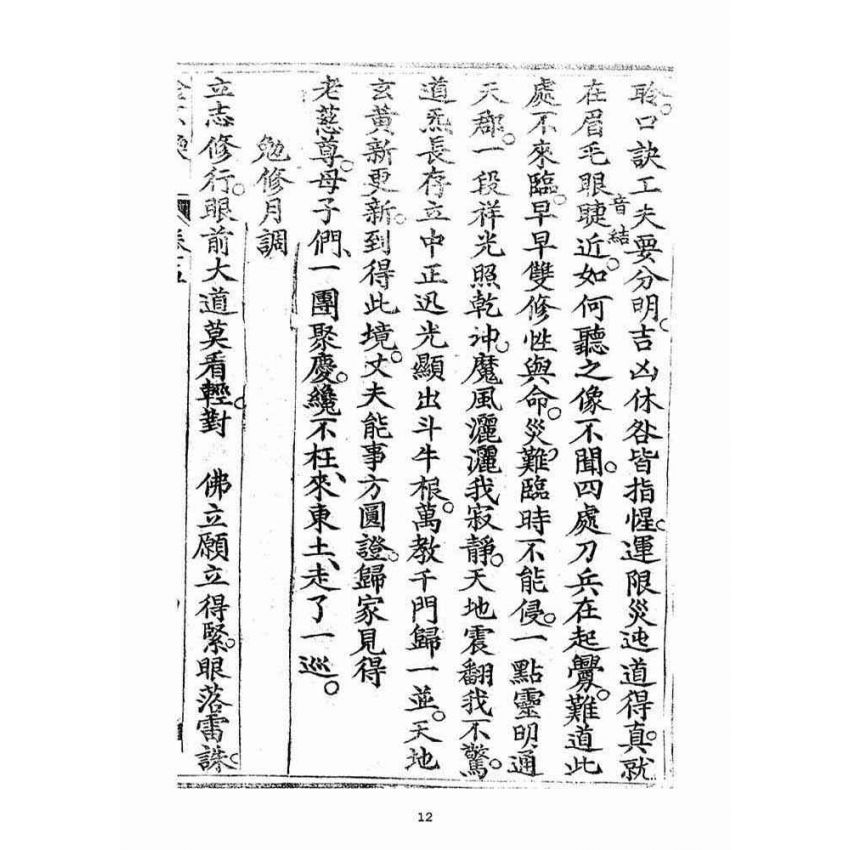 聆。口訣工夫要分明。吉凶休咎皆指惺。運限災迍道得真。就
在眉毛眼睫音結近。如何聽之像不聞。四處刀兵在起釁。難道此
處不來臨。早早雙修性與命。災難臨時不能侵。一點靈明通
天郡。一段祥光照乾坤。魔風灑灑我寂靜。天地震翻我不驚。
道炁長存立中正迅光顯出斗牛根。萬教千門歸一並。天地
玄黃新更新。到得此境。丈夫能事方圓證。歸家見得
老慈尊。母子們、一團聚慶。纔不枉、來東土、走了一巡。
勉修月調
立志修行。眼前大道莫看輕。對　佛立願立得緊。眼落雷誅。